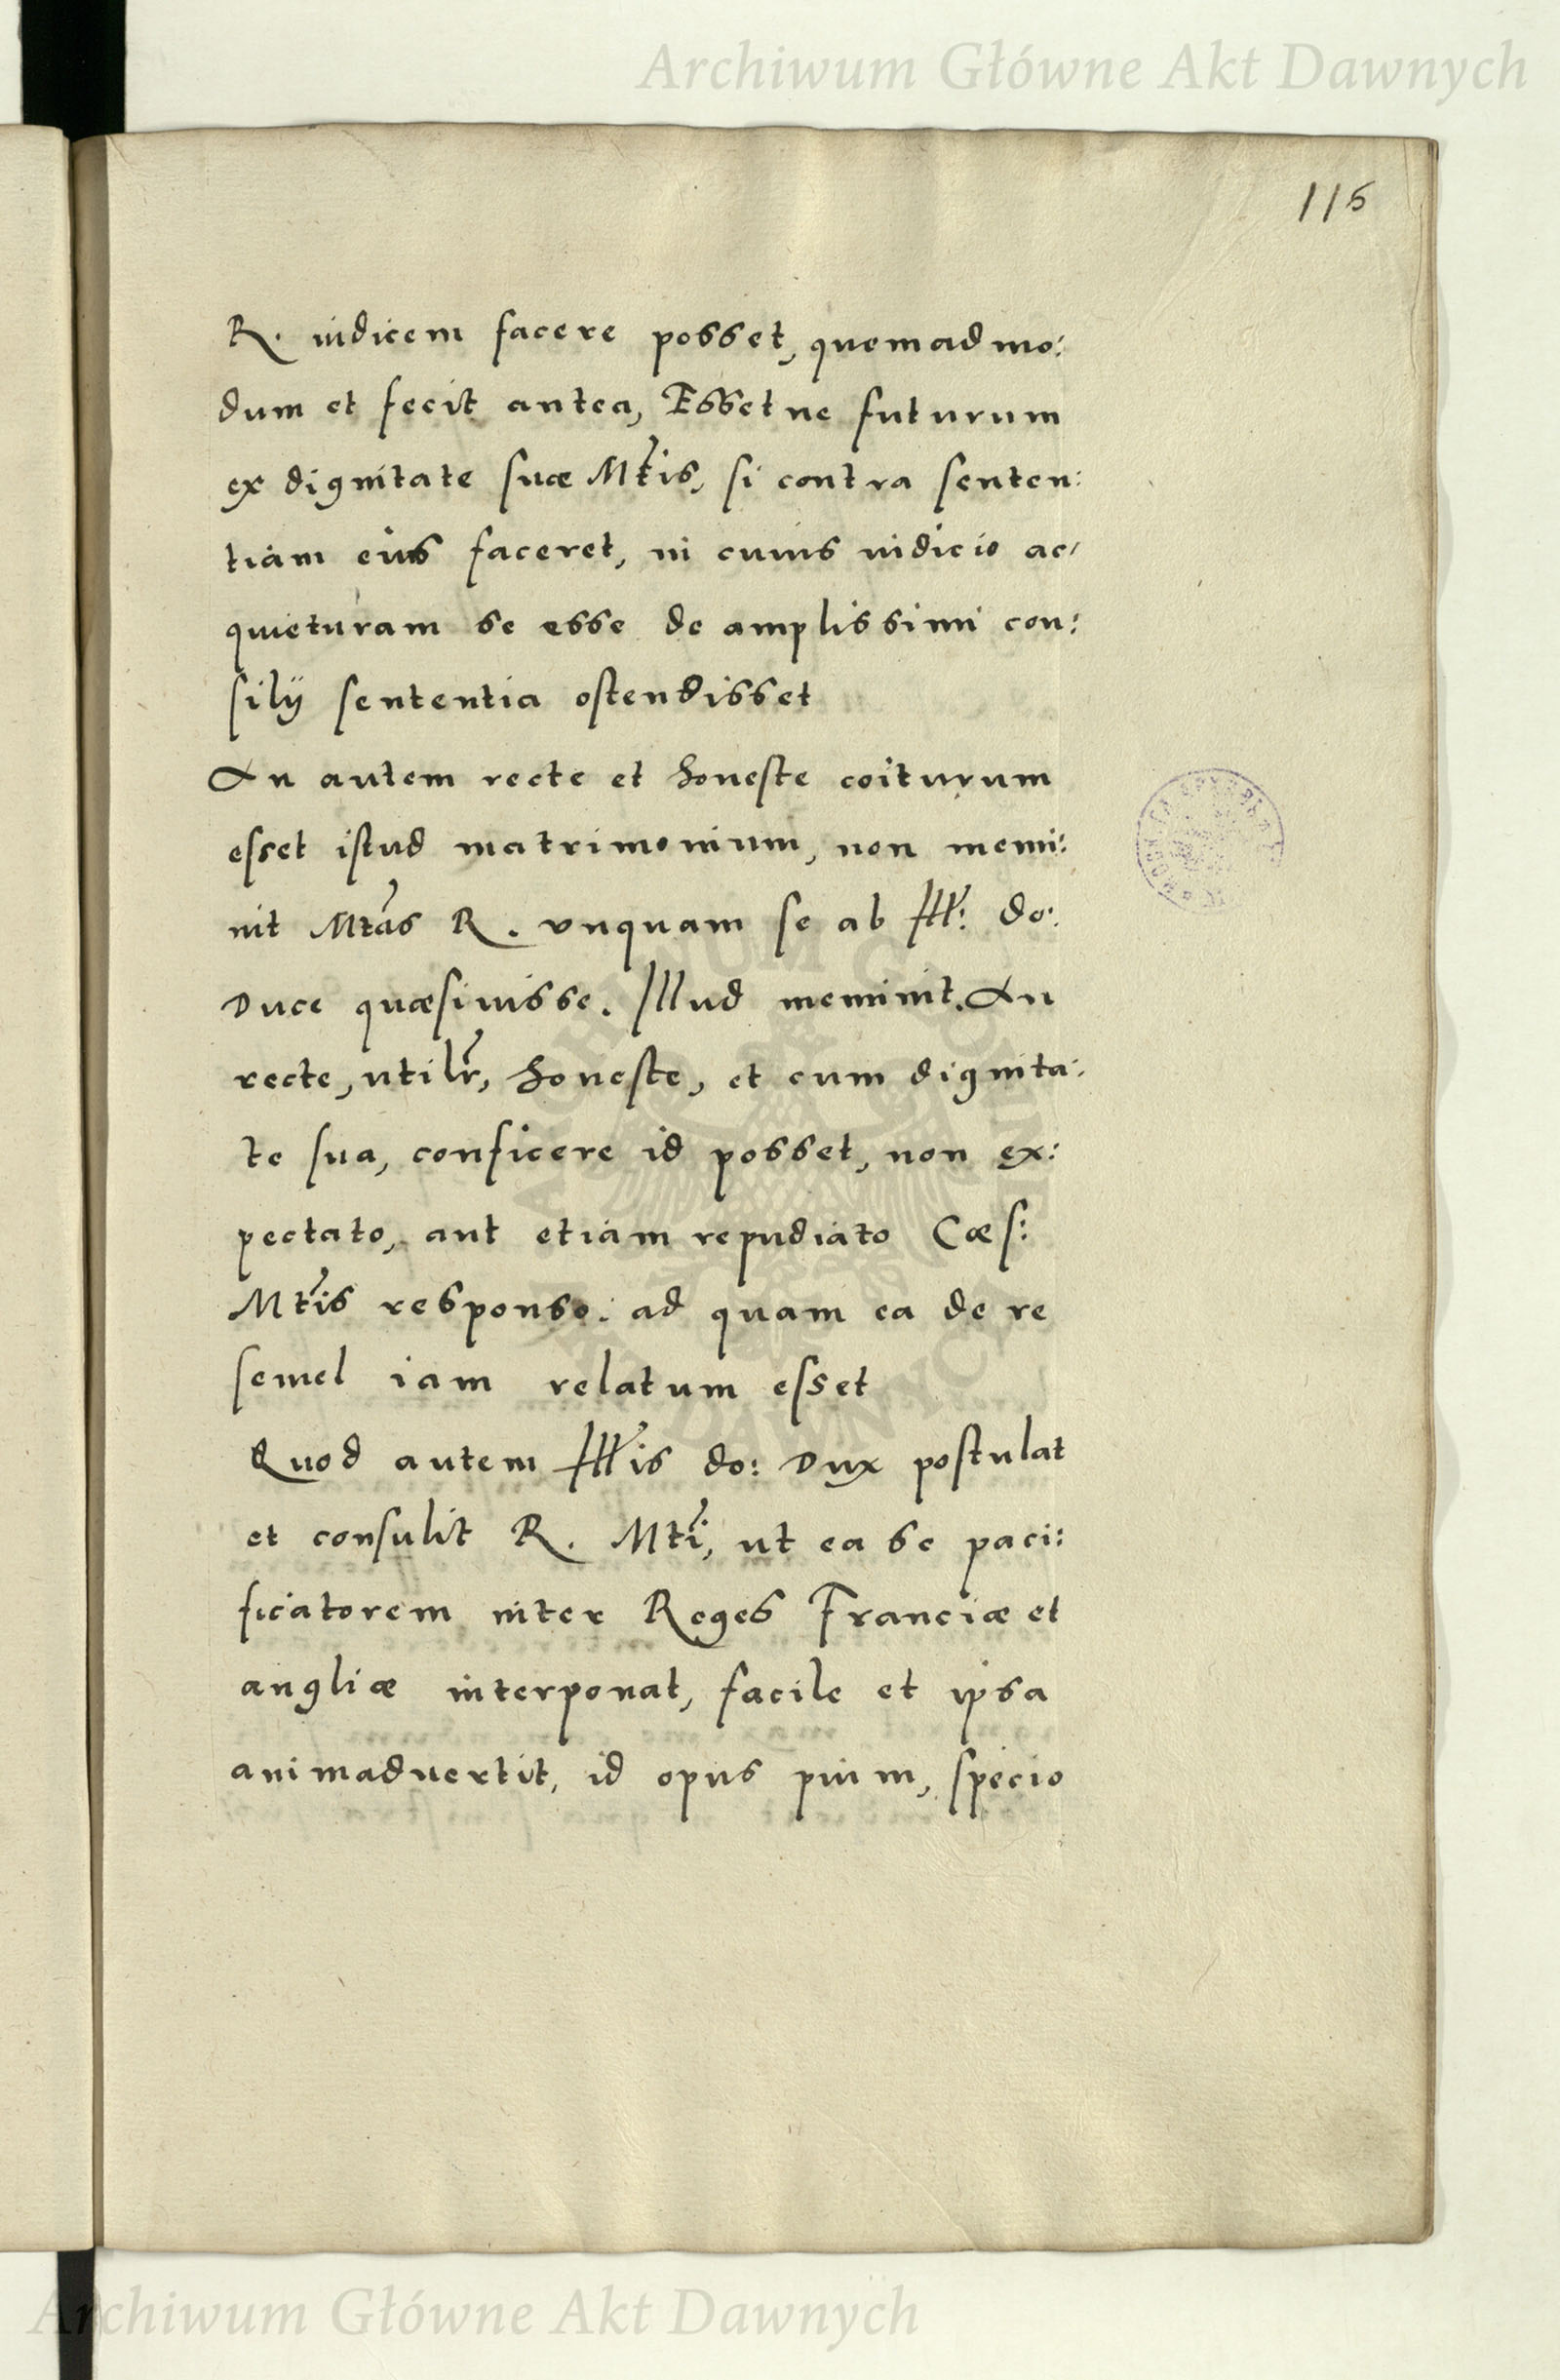 Archiwum Główne Akt Dawnych
115
R. iudicem facere posset, quemadmo:
dum et fecit antea, Essetne futurum
ex dignitate suæ Mtis, si contra senten:
tiam eius faceret, in cuius iudicio ac,
quieturam se esse de amplissimi con:
silij sententia ostendisset
An autem recte et honeste coiturum
esset istud matrimonium, non memi:
nit Mtas R. vnquam se ab Ill: do:
Duce quæsiuisse. Illud meminit. An
recte, utilr, honeste, et cum dignita:
te sua, conficere id posset, non ex:
pectato, aut etiam repudiato Cæs:
Mtis responso. ad quam ea de re
semel iam relatum esset
Quod autem Illis do: Dux postulat
et consulit R. Mti, ut ea se paci:
ficatorem inter Reges Franciæ et
angliæ interponat, facile et ipsa
animaduertit, id opus pium, specio
Archiwum Główne Akt Dawnych